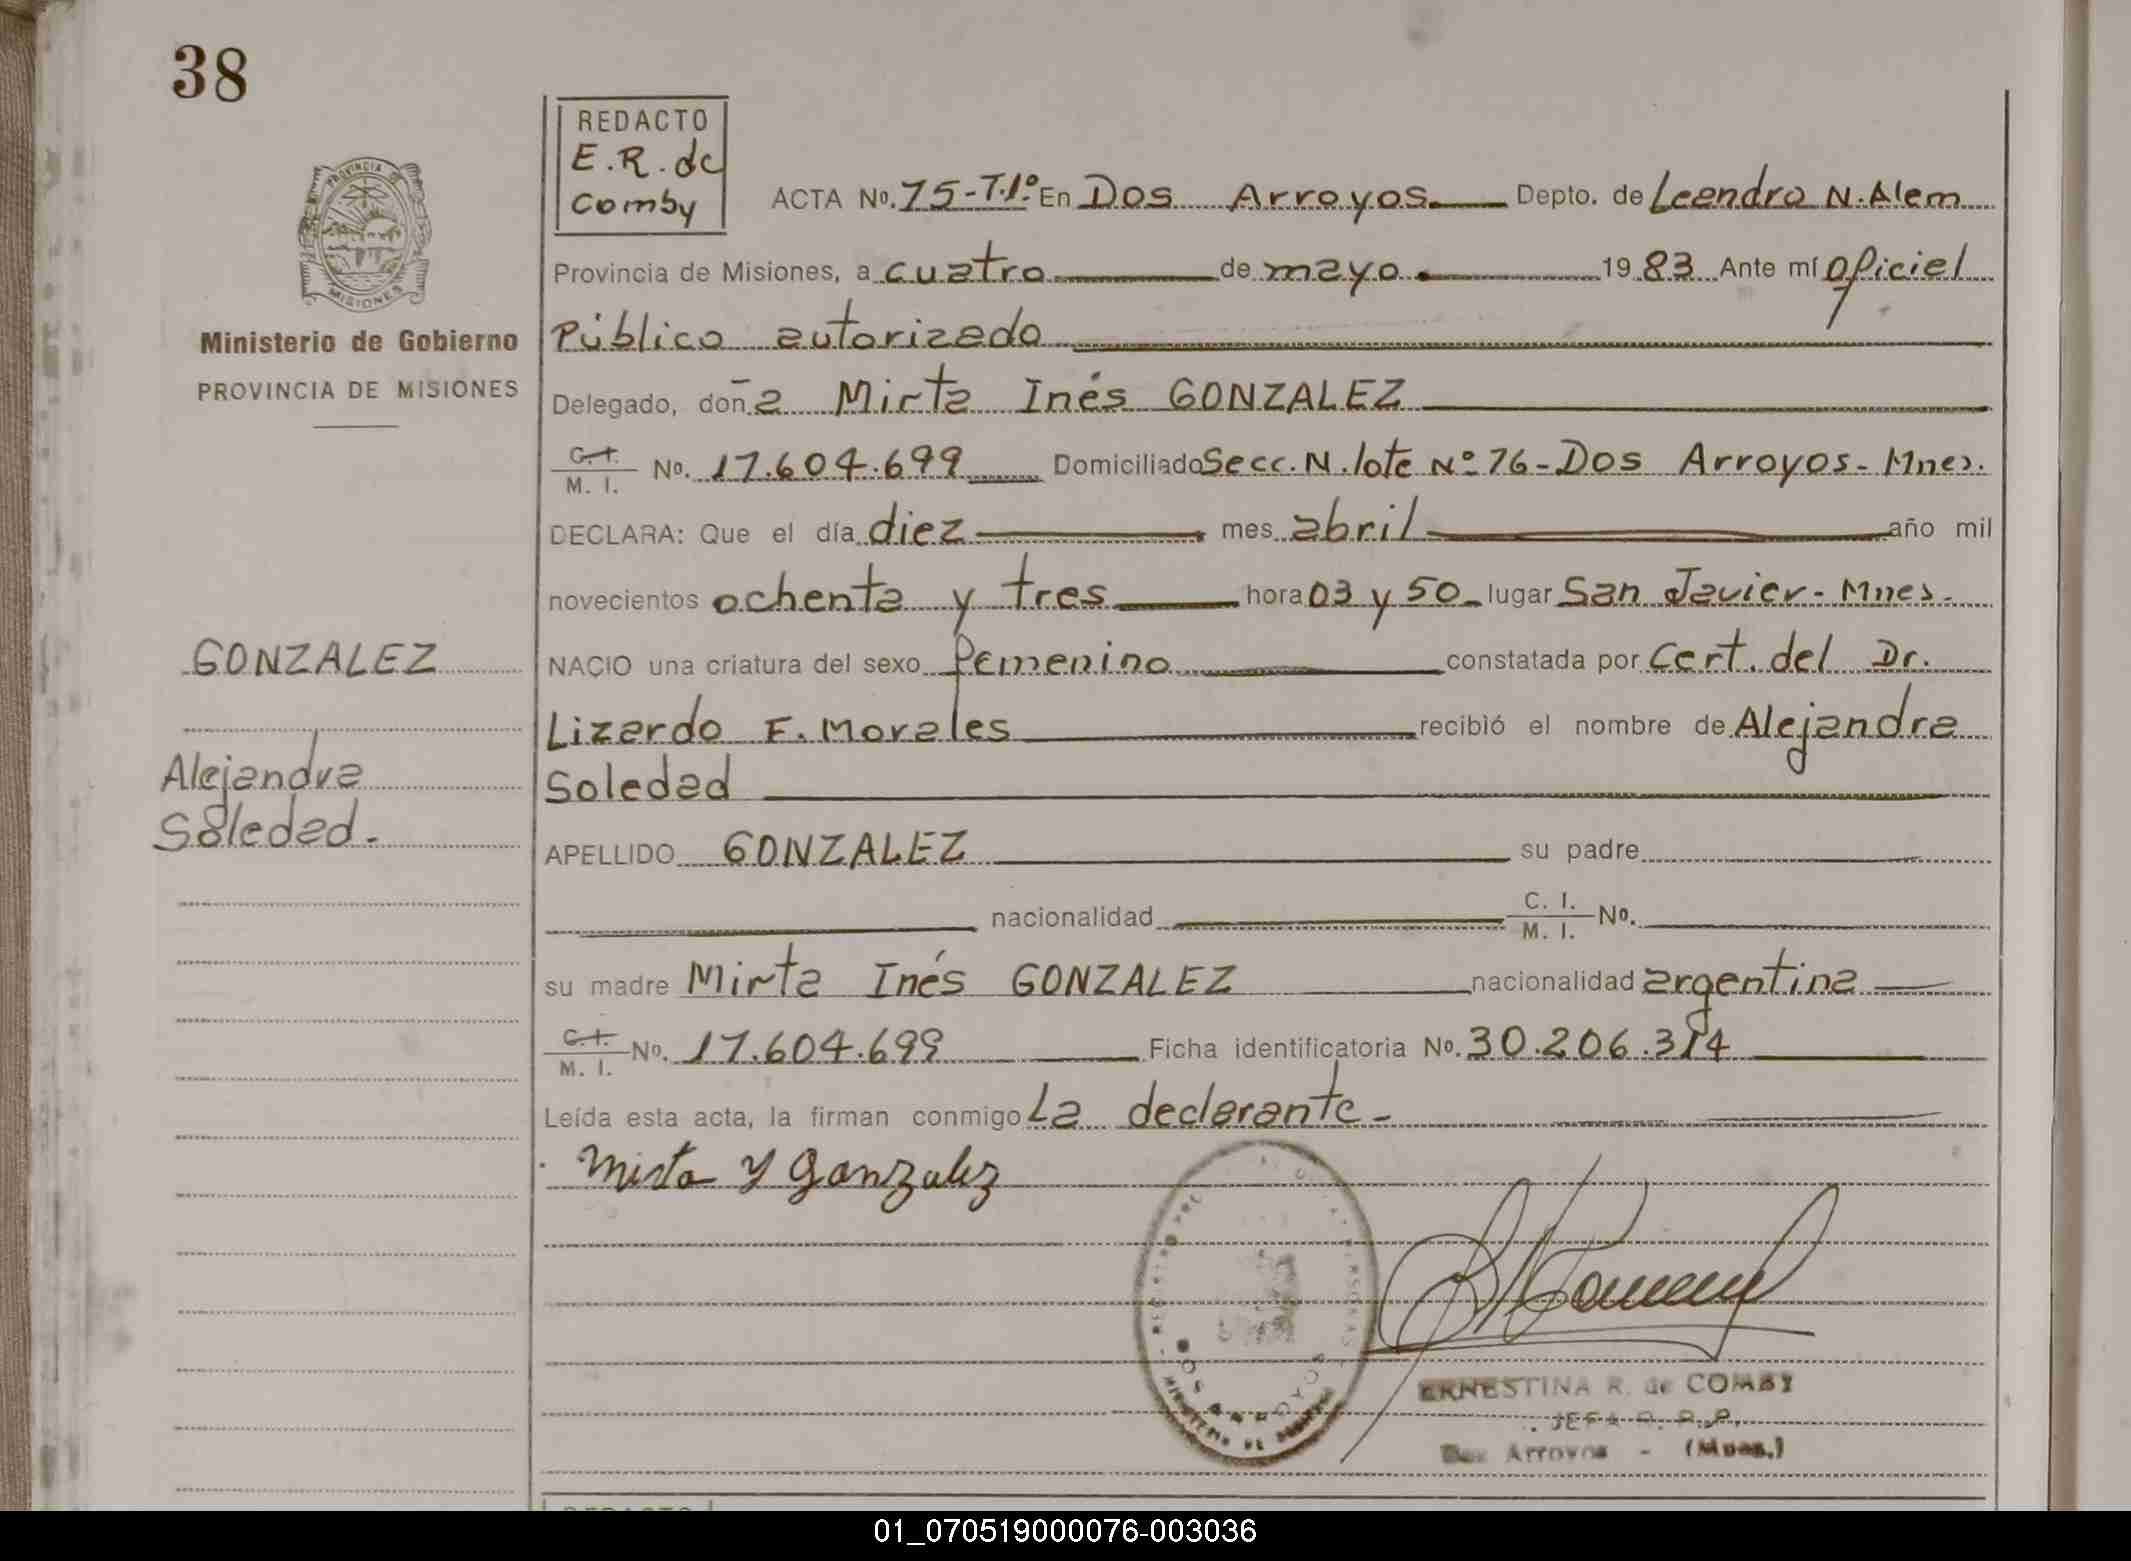 38
REDACTO
E.R. de
Comby
PROVINCIA DE
MISIONES
ACTA No. 75-T.1º. En Dos Arroyos. Depto. de Leandro N. Alem
Provincia de Misiones, a cuatro de mayo. 1983 Ante mí oficial
Ministerio de Gobierno
PROVINCIA DE MISIONES
Público autorizado
Delegado, doña Mirta Inés GONZALEZ
C. I. / M. I. No. 17.604.699 Domiciliado Secc. N. lote Nº 76-Dos Arroyos- Mnes.
DECLARA: Que el día diez mes abril año mil
novecientos ochenta y tres hora 03 y 50 lugar San Javier- Mnes.
GONZALEZ
NACIO una criatura del sexo femenino constatada por Cert. del Dr.
Lizardo F. Morales recibió el nombre de Alejandra
Alejandra
Soledad
Soledad.
APELLIDO GONZALEZ su padre
nacionalidad C. I. / M. I. No.
su madre Mirta Inés GONZALEZ nacionalidad argentina
C. I. / M. I. No. 17.604.699 Ficha identificatoria No. 30.206.314
Leída esta acta, la firman conmigo La declarante-
Mirta Y Gonzalez
ERNESTINA R. de COMBY
JEFA R. P. P.
Dos Arroyos - (Mnes.)
REDACTO
01_070519000076-003036